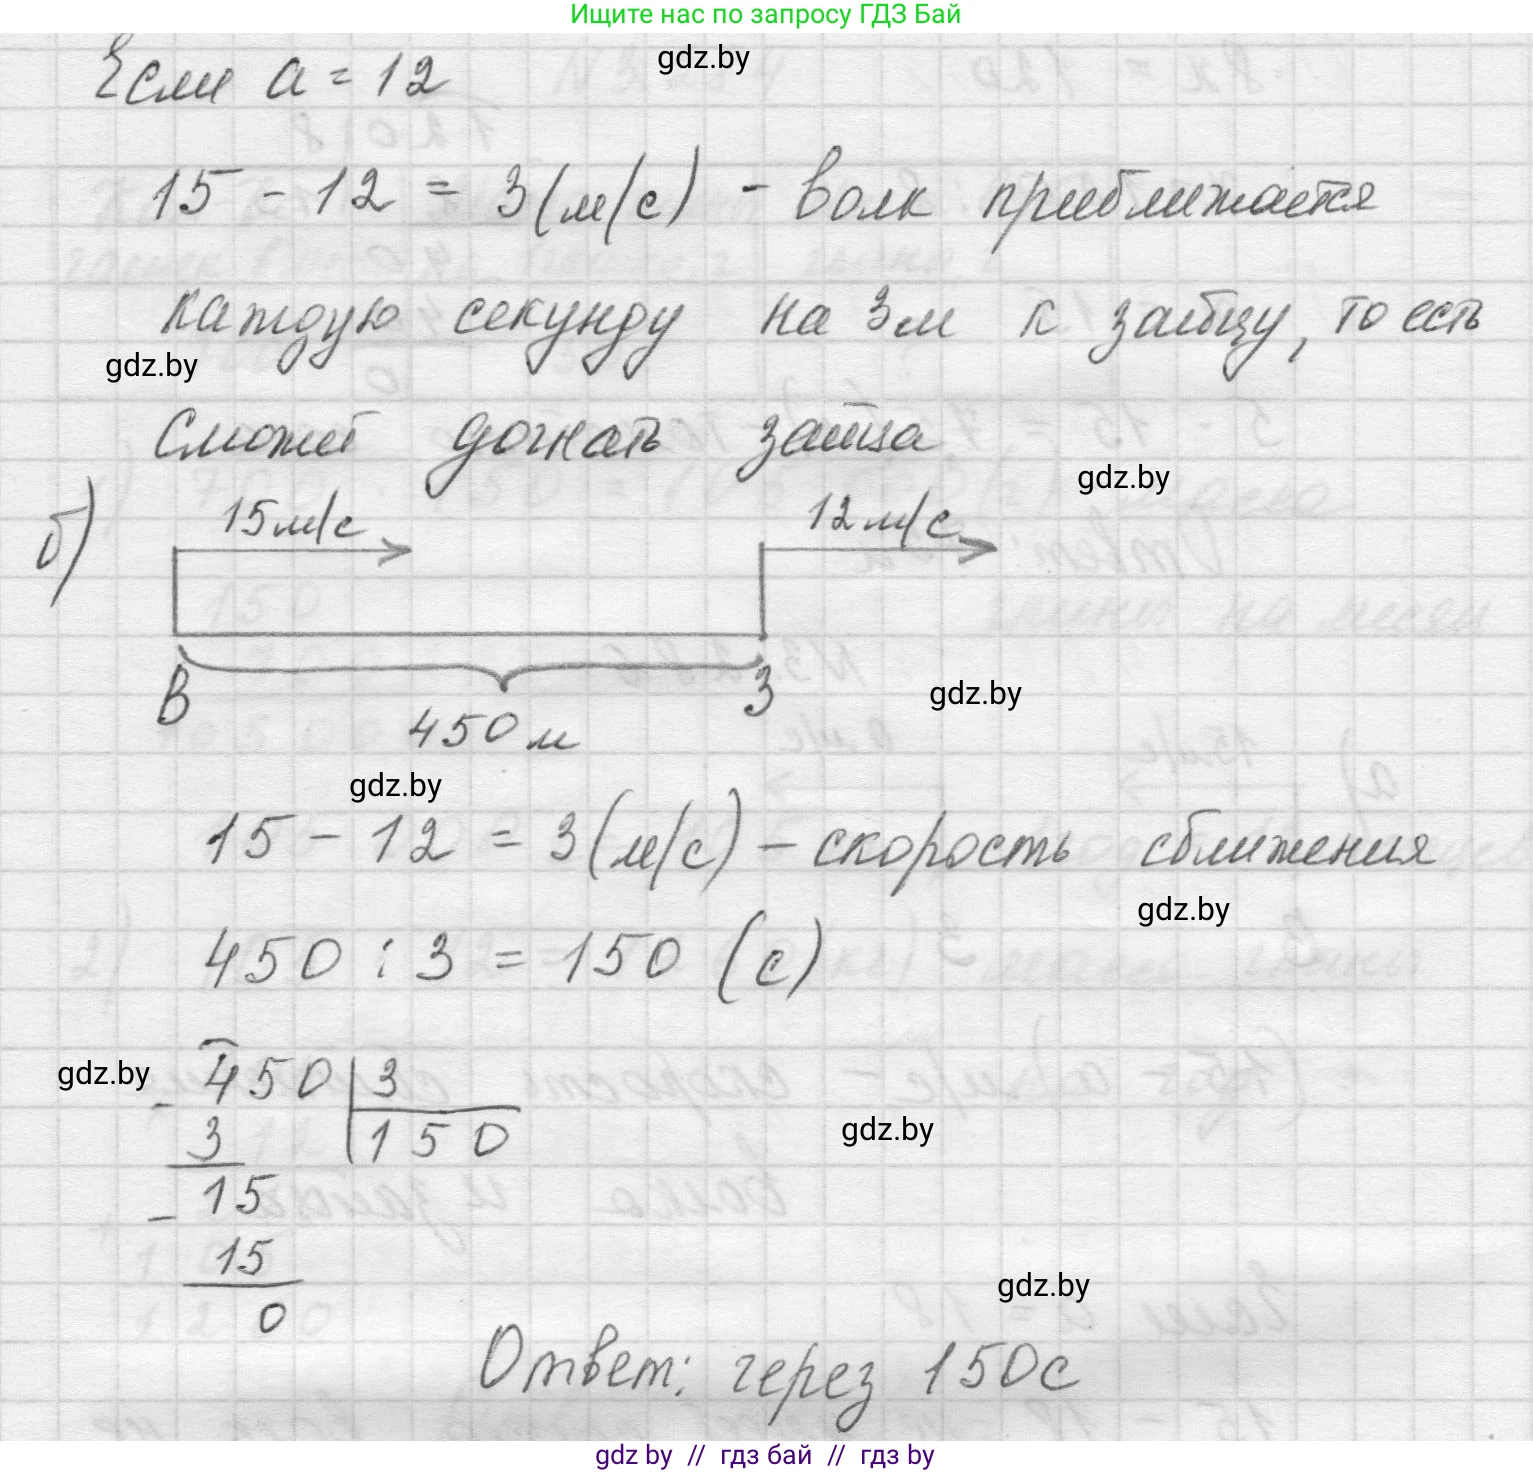 Ищите нас по запросу ГДЗ Бай
gdz.by
Если a = 12
15 - 12 = 3 (м/с) - волк приближается
каждую секунду на 3м к зайцу, то есть
gdz.by
сможет догнать зайца
gdz.by
б)
15м/с
12м/с
В
З
gdz.by
450 м
gdz.by
15 - 12 = 3 (м/с) - скорость сближения
gdz.by
450 : 3 = 150 (с)
gdz.by
- 450 | 3
3 | 150
gdz.by
- 15
15
0
gdz.by
Ответ: через 150с
gdz by // гдз бай // гдз by